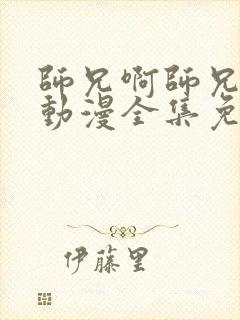 師兄啊師兄
動漫全集免
伊藤里